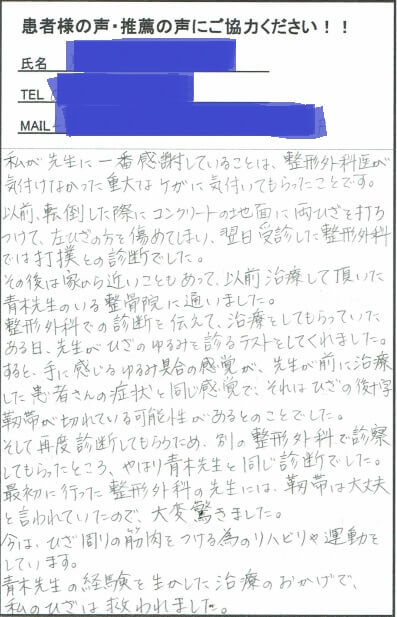 患者様の声・推薦の声にご協力ください！！
氏名
TEL
MAIL
私が先生に一番感謝していることは、整形外科医が
気付けなかった重大なケガに気付いてもらったことです。
以前、転倒した際にコンクリートの地面に両ひざを打ち
つけて、左ひざの方を傷めてしまい、翌日受診した整形外科
では打撲との診断でした。
その後は家から近いこともあって、以前治療して頂いた
青木先生のいる整骨院に通いました。
整形外科での診断を伝えて、治療をしてもらっていた
ある日、先生がひざのゆるみを診るテストをしてくれました。
すると、手に感じるゆるみ具合の感覚が、先生が前に治療
した患者さんの症状と同じ感覚で、それはひざの後十字
靭帯が切れている可能性があるとのことでした。
そして再度診断してもらうため、別の整形外科で診察
してもらったところ、やはり青木先生と同じ診断でした。
最初に行った整形外科の先生には、靭帯は大丈夫
と言われていたので、大変驚きました。
今は、ひざ周りの筋肉をつける為のリハビリや運動を
しています。
青木先生の経験を生かした治療のおかげで、
私のひざは救われました。